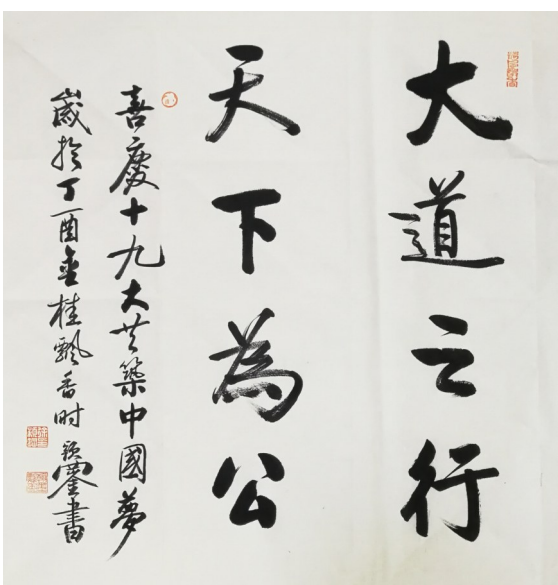 大道之行
天下為公
喜慶十九大共築中國夢
歲於丁酉金桂飄香时
書